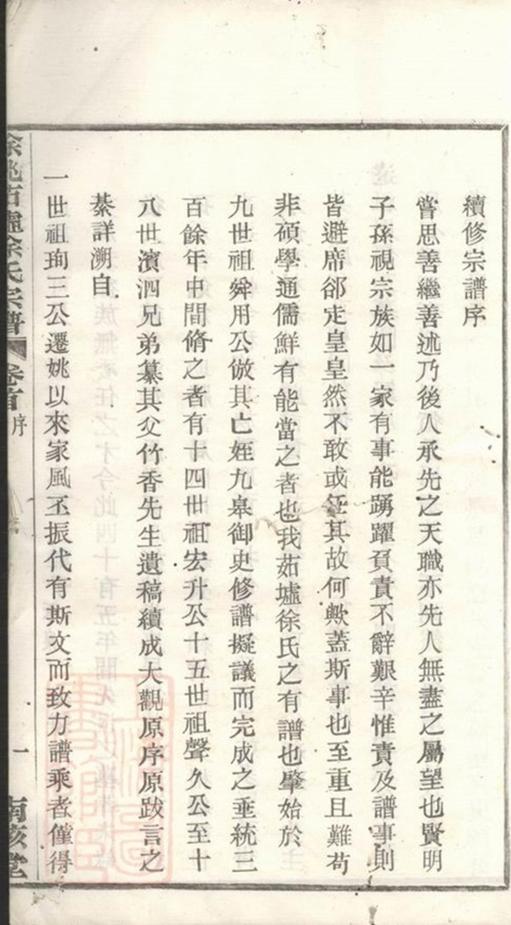 續修宗譜序
嘗思善繼善述乃後人承先之天職亦先人無盡之屬望也賢明
子孫視宗族如一家有事能踴躍負責不辭艱辛惟責及譜事則
皆避席郤走皇皇然不敢或任其故何歟蓋斯事也至重且難苟
非碩學通儒鮮有能當之者也我茹墟徐氏之有譜也肇始於
九世祖舜用公倣其亡姪九皋御史修譜擬議而完成之垂統三
百餘年中間脩之者有十四世祖宏升公十五世祖聲久公至十
八世濱泗兄弟纂其父竹香先生遺稿續成大觀原序原跋言之
綦詳溯自
一世祖珣三公遷姚以來家風丕振代有斯文而致力譜乘者僅得
餘姚茹墟徐氏宗譜
卷首
序
一
南陔堂